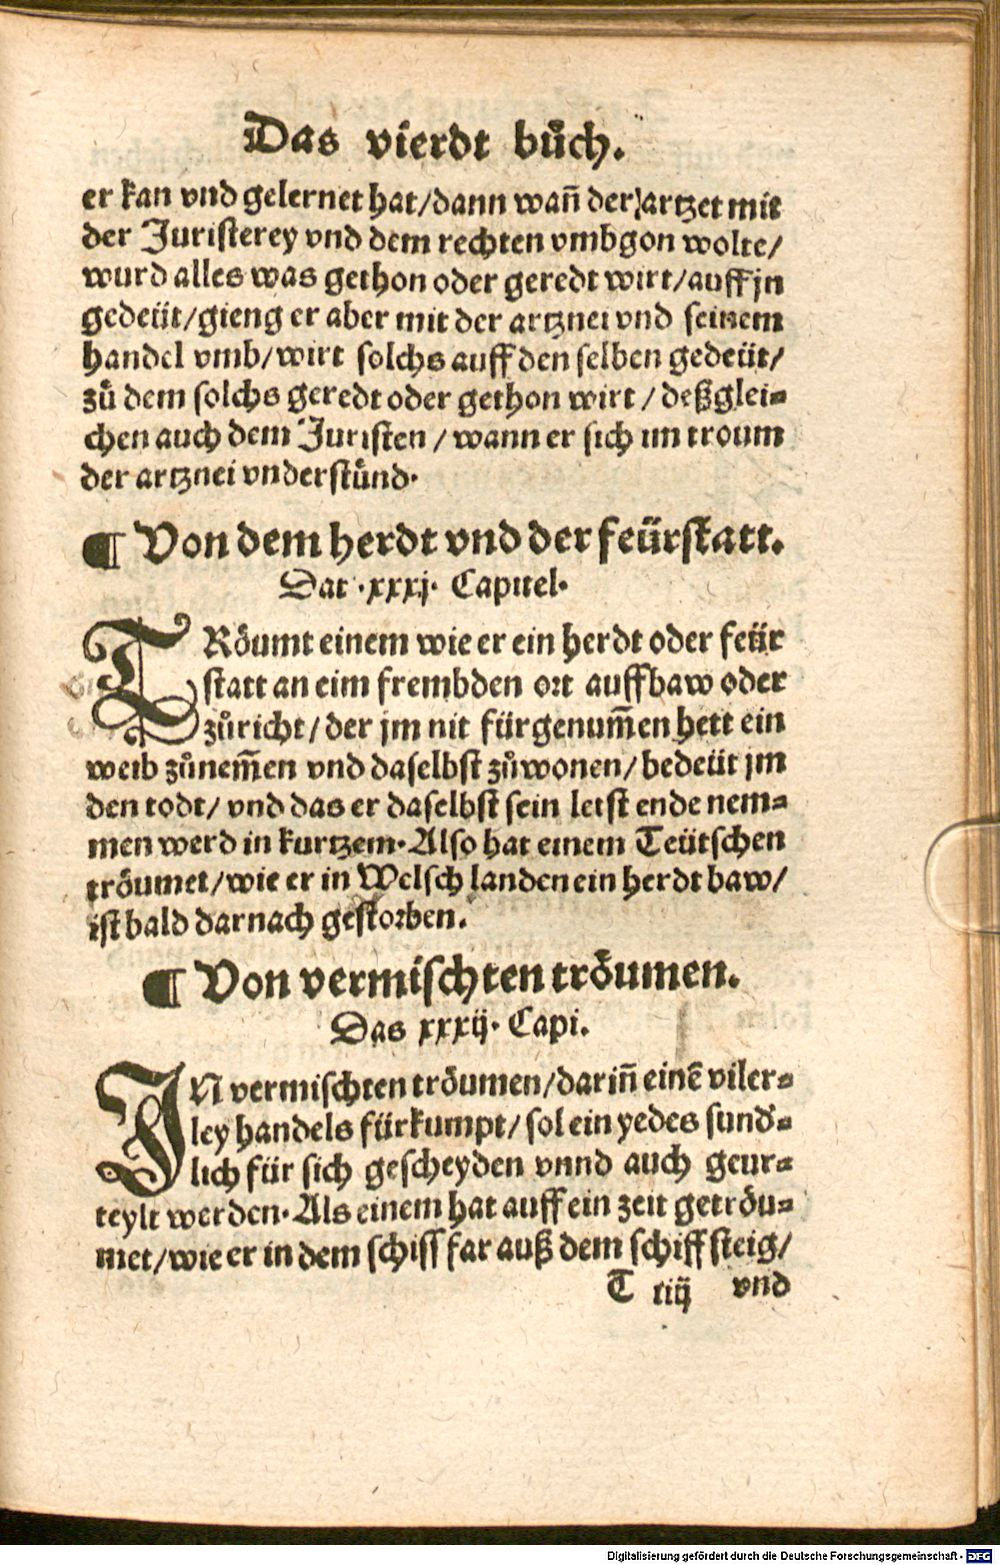 Das vierdt bůch.
er kan vnd gelernet hat/dann wañ der artzet mit
der Juristerey vnd dem rechten vmbgon wolte/
wurd alles was gethon oder geredt wirt/auff jn
gedeüt/gieng er aber mit der artznei vnd seinem
handel vmb/wirt solchs auff den selben gedeüt/
zů dem solchs geredt oder gethon wirt/deßglei-
chen auch dem Juristen/wann er sich im troum
der artznei vnderstünd.
¶ Von dem herdt vnd der feürstatt.
Dat .xxxj. Capittel.
TRöumt einem wie er ein herdt oder feür
statt an eim frembden ort auffbaw oder
zůricht/der jm nit fürgenum̃en hett ein
weib zůnem̃en vnd daselbst zůwonen/bedeüt jm
den todt/vnd das er daselbst sein letst ende nem-
men werd in kurtzem. Also hat einem Teütschen
tröumet/wie er in Welsch landen ein herdt baw/
ist bald darnach gestorben.
¶ Von vermischten tröumen.
Das xxxij. Capi.
IN vermischten tröumen/dariñ einē viler-
ley handels fürkumpt/sol ein yedes sund-
lich für sich gescheyden vnnd auch geur-
teylt werden. Als einem hat auff ein zeit getröu-
met/wie er in dem schiff far auß dem schiff steig/
T iiij vnd
Digitalisierung gefördert durch die Deutsche Forschungsgemeinschaft - DFG